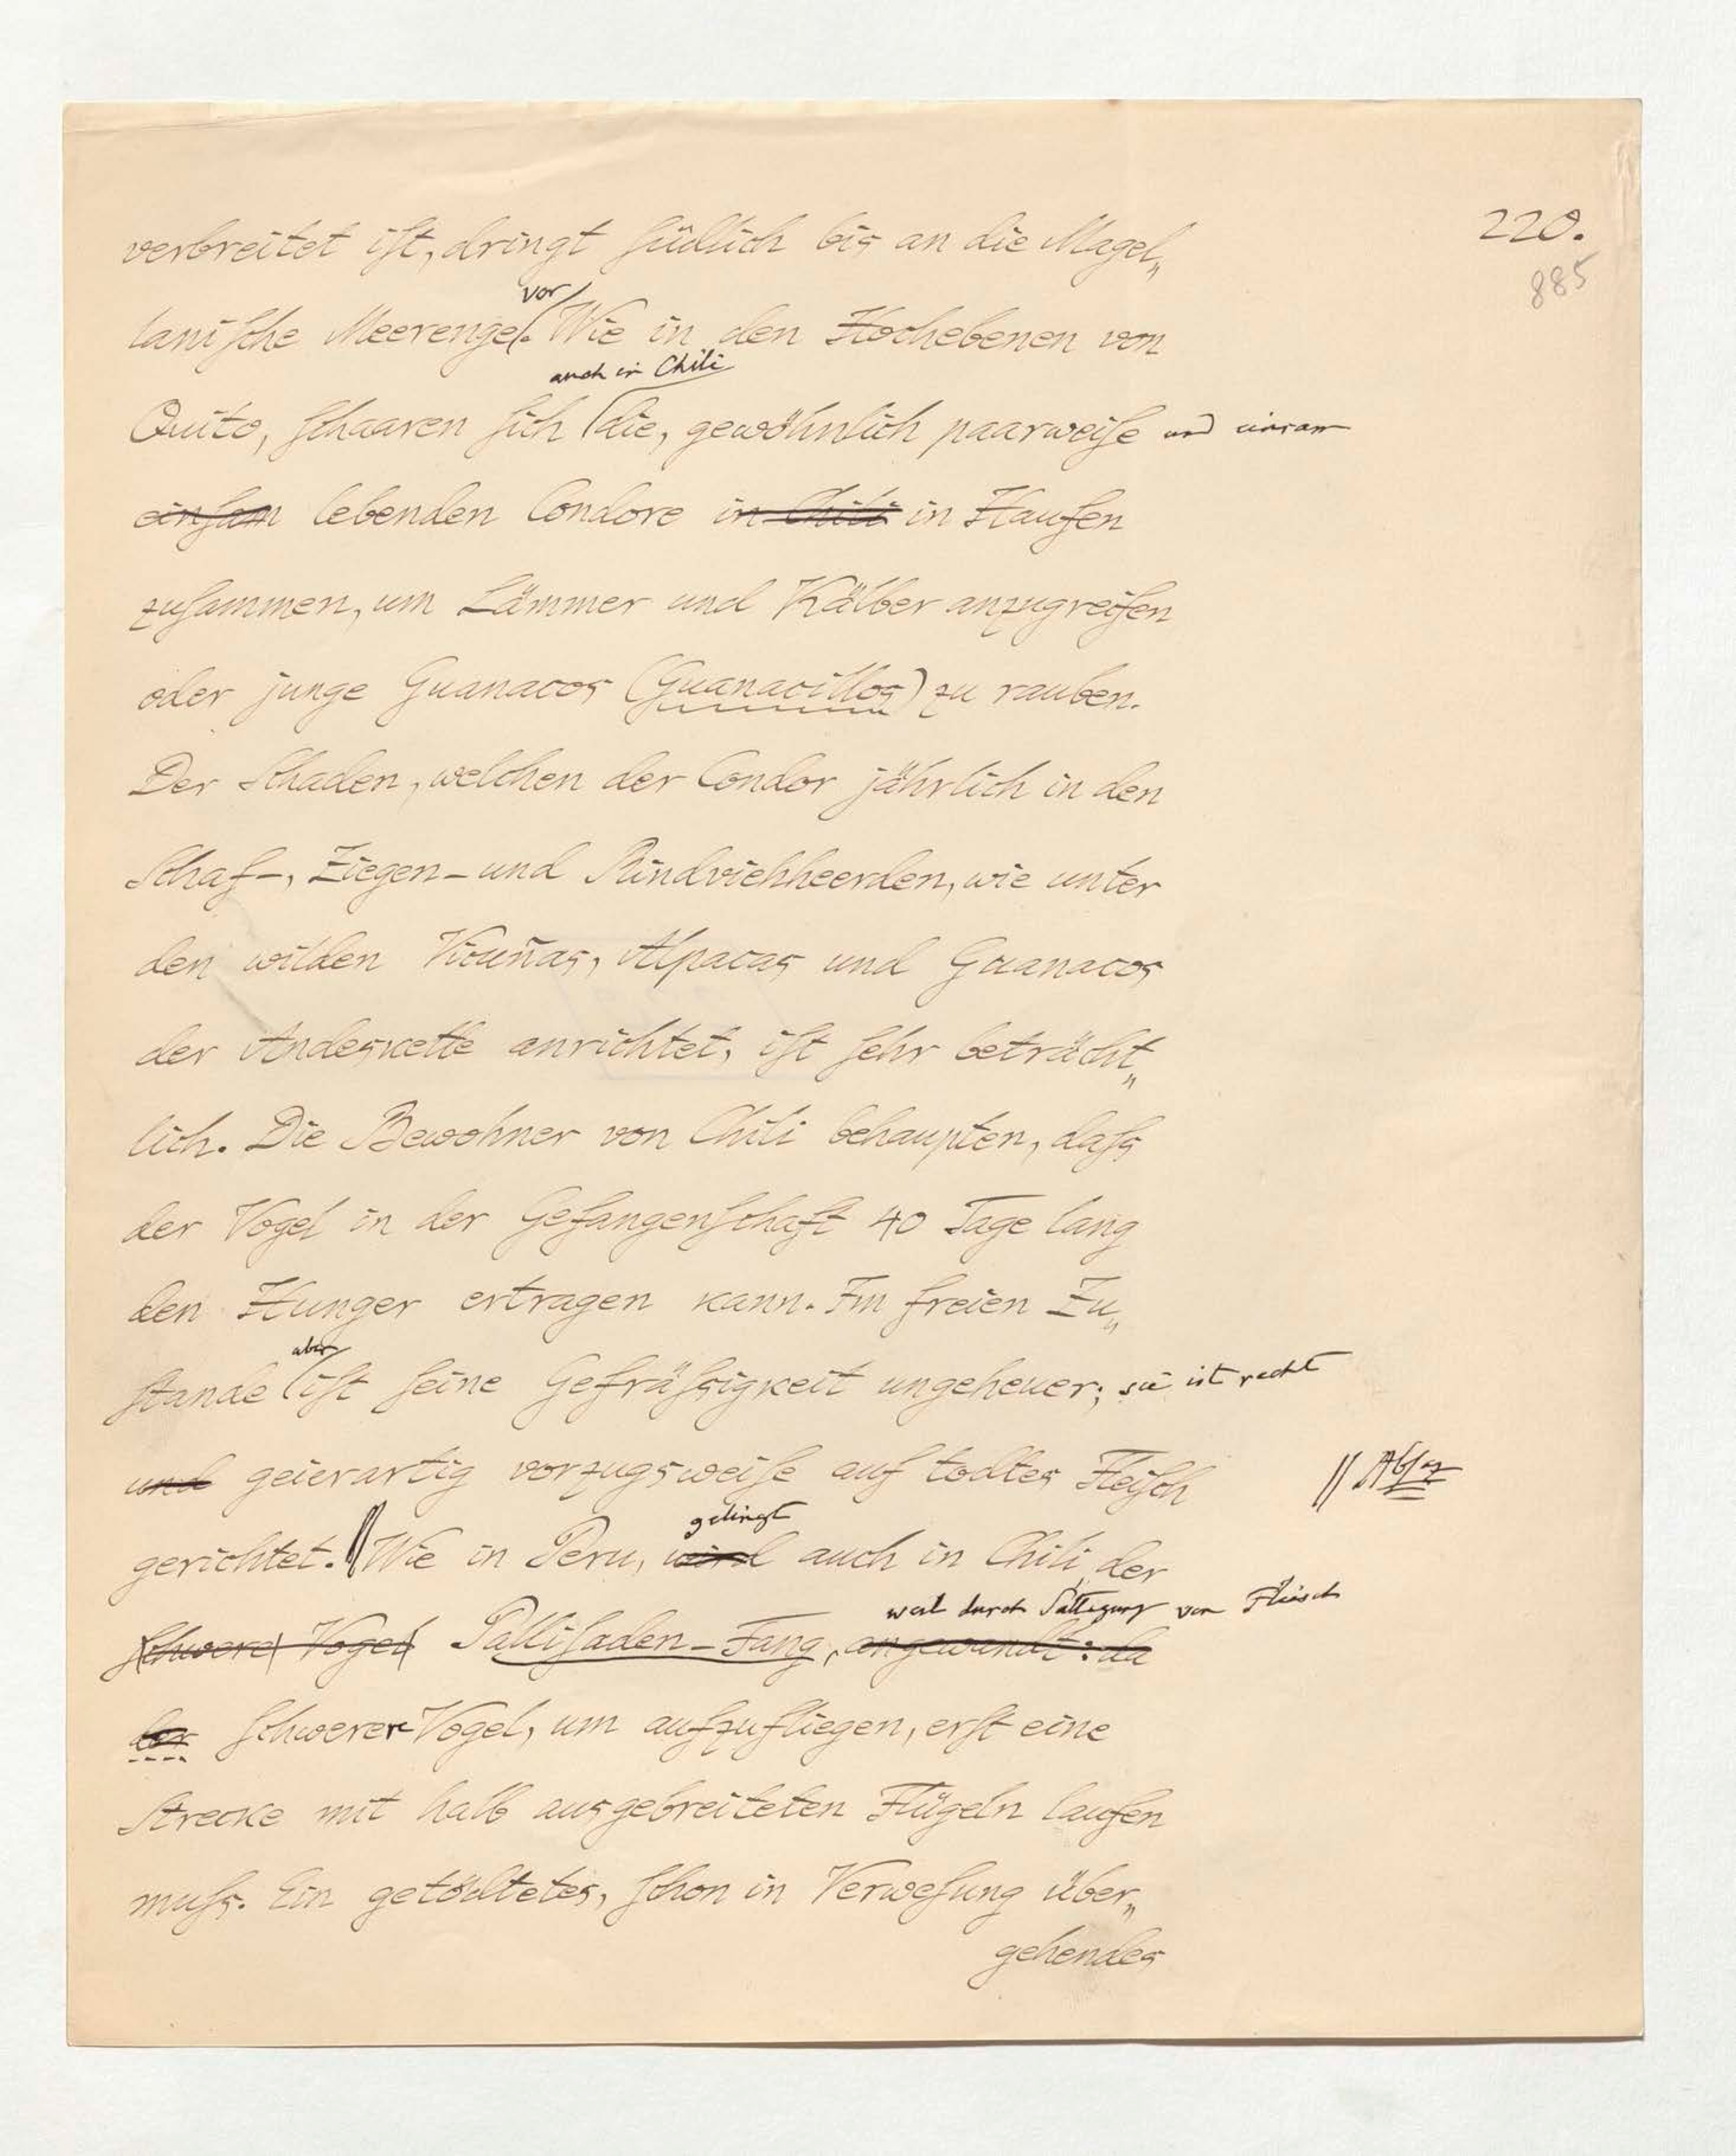 220.
885
verbreitet ist, dringt südlich bis an die Magel„
vor
lanische Meerenge. Wie in den Hochebenen von
auch in Chili
Quito, schaaren sich die, gewöhnlich paarweise und einsam
einsam lebenden Condore in Chili in Haufen
zusammen, um Lämmer und Kälber anzugreifen
oder junge Guanacos (Guanacillos) zu rauben.
Der Schaden, welchen der Condor jährlich in den
Schaf-, Ziegen- und Rindviehheerden, wie unter
den wilden Vicuñas, Alpacas und Guanacos
der Andeskette anrichtet, ist sehr beträcht„
lich. Die Bewohner von Chili behaupten, dass
der Vogel in der Gefangenschaft 40 Tage lang
den Hunger ertragen kann. Im freien Zu„
aber
stande ist seine Gefrässigkeit ungeheuer; sie ist recht
und geierartig vorzugsweise auf todtes Fleisch
// Absaz
gelingt
gerichtet. // Wie in Peru, wird auch in Chili der
weil durch Sättigung von Fleisch
schwere Vogel Pallisaden-Fang, angewandt: da
der schwerer Vogel, um aufzufliegen, erst eine
Strecke mit halb ausgebreiteten Flügeln laufen
muss. Ein getödtetes, schon in Verwesung über„
gehendes